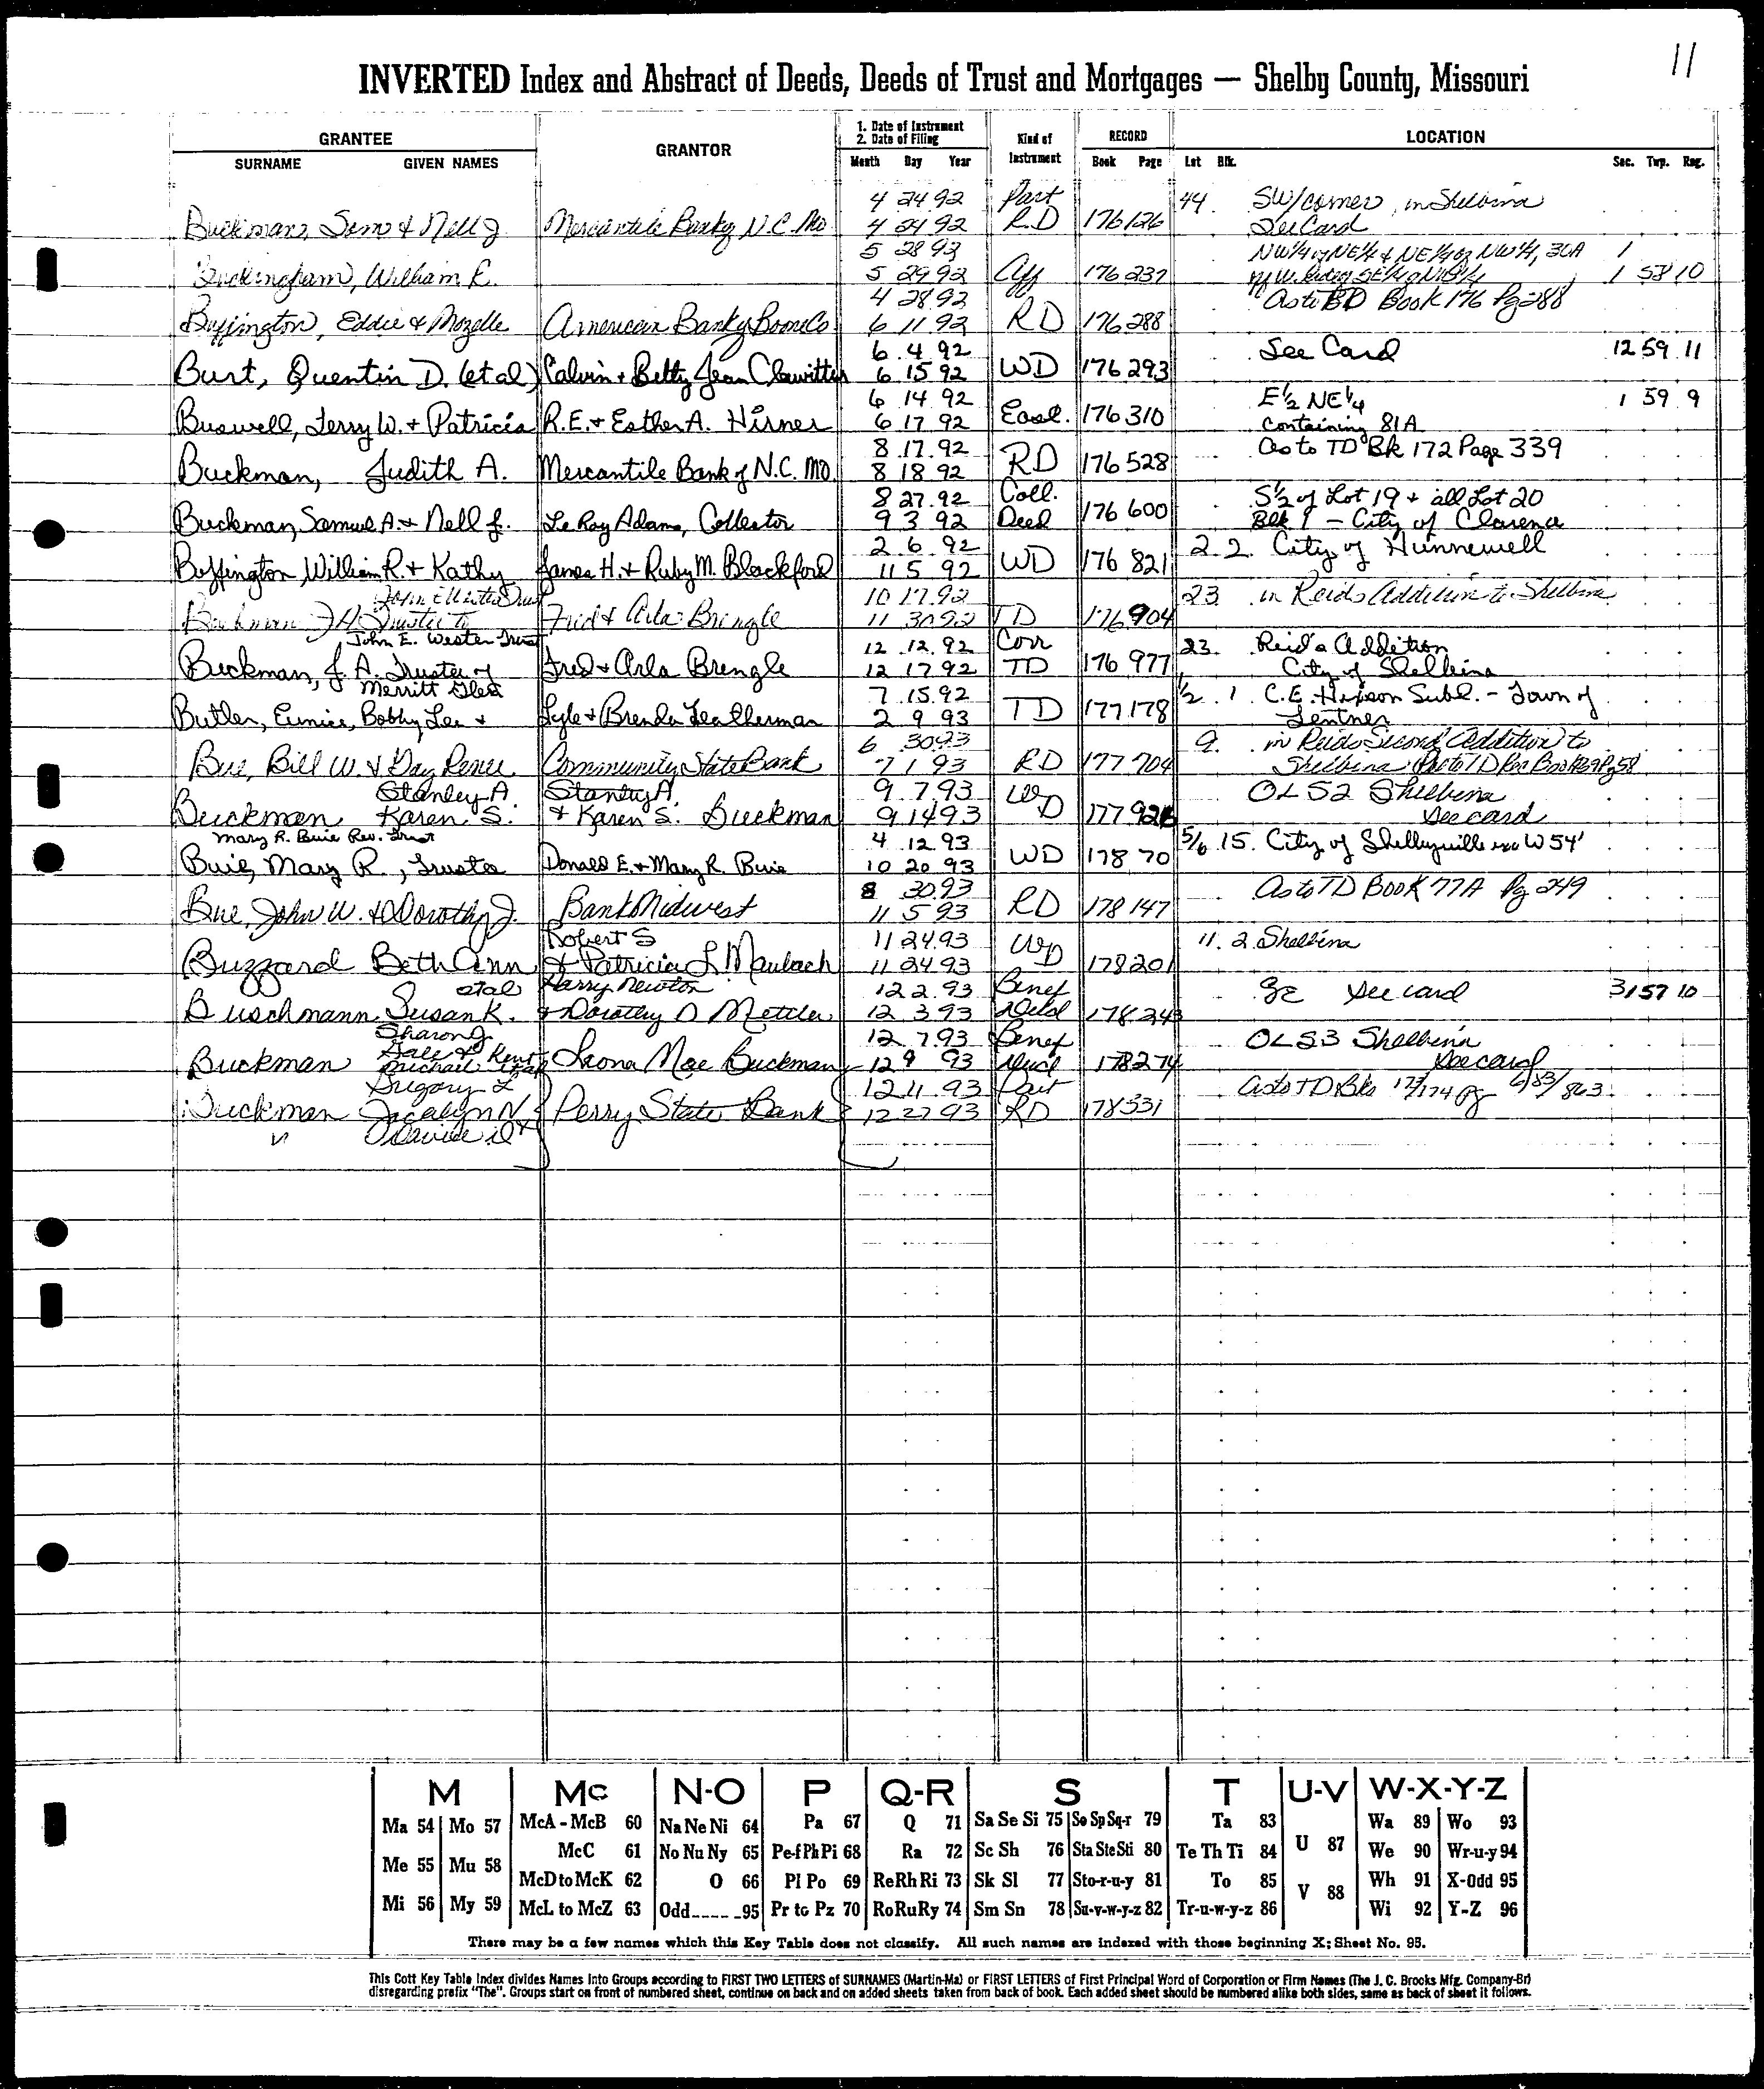 11
INVERTED Index and Abstract of Deeds, Deeds of Trust and Mortgages — Shelby County, Missouri
GRANTEE GRANTOR 1. Date of Instrument 2. Date of Filing Kind of Instrument RECORD LOCATION
SURNAME GIVEN NAMES Month Day Year Book Page Lot Blk. Sec. Twp. Rng.
4 24 92 Part 44. SW/corner, in Shelbina
Buckman, Sam & Nell J Mercantile Bank of N.C. Mo 4 24 92 R.D 176 126 See Card
5 28 93 NW¼ of NE¼ & NE¼ of NW¼, 30A 1
Buckingham, William R. 5 29 92 Aff 176 237 1 58 10
4 28 92 As to BD Book 176 Pg 288
Buffington, Eddie & Mozelle American Bank of Boone Co 6 11 92 RD 176 288
6 4 92 See Card 12 59 11
Burt, Quentin D. (et al) Calvin + Betty Jean Clawitter 6 15 92 WD 176 293
6 14 92 E½ NE¼ 1 59 9
Buswell, Terry W. + Patricia R.E. + Esther A. Hirner 6 17 92 Ease. 176 310 containing 81A
8 17 92 As to TD Bk 172 Page 339
Buckman, Judith A. Mercantile Bank of N.C. MO. 8 18 92 RD 176 528
8 27 92 Coll. S½ of Lot 19 + all Lot 20
Buckman, Samuel A. + Nell J. LeRoy Adams, Collector 9 3 92 Deed 176 600 Blk 1 – City of Clarence
2 6 92 2 2 City of Hunnewell
Buffington William R. + Kathy James H. + Ruby M. Blackford 11 5 92 WD 176 821
10 17 92 23 in Reids Addition to Shelbina
Buckman JA Trustee to Fred & Arla Bringle 11 30 92 TD 176 904
John E. Wester Trust 12 12 92 Corr 23. Reid's Addition
Buckman, J. A. Trustee of Fred + Arla Brengle 12 17 92 TD 176 977 City of Shelbina
Merritt Glea 7 15 92 ½ 1 C.E. Hixson Subd. – Town of
Butler, Eunice, Bobby Lee + Lyle + Brenda Leatherman 2 9 93 TD 177 178 Lentner
6 30 93 9. in Reids Second Addition to
Bue, Bill W. & Day Renee Community State Bank 7 1 93 RD 177 704 Shelbina
Stanley A. Stanley A. 9 7 93 OL 52 Shelbina
Buckman Karen S. + Karen S. Buckman 9 14 93 WD 177 926 See card
Mary R. Buie Rev. Trust 4 12 93 5/6 15. City of Shelbyville exc W 54'
Buie, Mary R., Trustee Donald E. + Mary R. Buie 10 20 93 WD 178 70
8 30 93 As to TD BOOK 77A Pg 249
Bue, John W. & Dorothy J. Bank Midwest 11 5 93 RD 178 147
Robert S 11 24 93 11. 2 Shelbina
Buzzard Beth Ann & Patricia L Maubach 11 24 93 WD 178 201
et al Harry Newton 12 2 93 Benef SE See card 31 57 10
Buschmann Susan K. & Dorothy D Mettler 12 3 93 Deed 178 243
Sharon J 12 7 93 Benef OL 53 Shelbina
Buckman Leona Mae Buckman 12 9 93 Deed 178 274 See card
Gregory L 12 11 93 Part As to TD Bks 173/174 Pg
Buckman Jacalyn N. & Perry State Bank 12 27 93 RD 178 331
M Mc N-O P Q-R S T U-V W-X-Y-Z
Ma 54 Mo 57 McA - McB 60 Na Ne Ni 64 Pa 67 Q 71 Sa Se Si 75 So Sp Sq-r 79 Ta 83 Wa 89 Wo 93
Me 55 Mu 58 McC 61 No Nu Ny 65 Pe-f Ph Pi 68 Ra 72 Sc Sh 76 Sta Ste Sti 80 Te Th Ti 84 U 87 We 90 Wr-u-y 94
McD to McK 62 O 66 Pl Po 69 Re Rh Ri 73 Sk Sl 77 Sto-r-u-y 81 To 85 V 88 Wh 91 X-Odd 95
Mi 56 My 59 McL to McZ 63 Odd 95 Pr to Pz 70 Ro Ru Ry 74 Sm Sn 78 Su-v-w-y-z 82 Tr-u-w-y-z 86 Wi 92 Y-Z 96
There may be a few names which this Key Table does not classify. All such names are indexed with those beginning X; Sheet No. 95.
This Cott Key Table Index divides Names Into Groups according to FIRST TWO LETTERS of SURNAMES (Martin-Ma) or FIRST LETTERS of First Principal Word of Corporation or Firm Names (The J. C. Brooks Mfg. Company-Br)
disregarding prefix "The". Groups start on front of numbered sheet, continue on back and on added sheets taken from back of book. Each added sheet should be numbered alike both sides, same as back of sheet it follows.